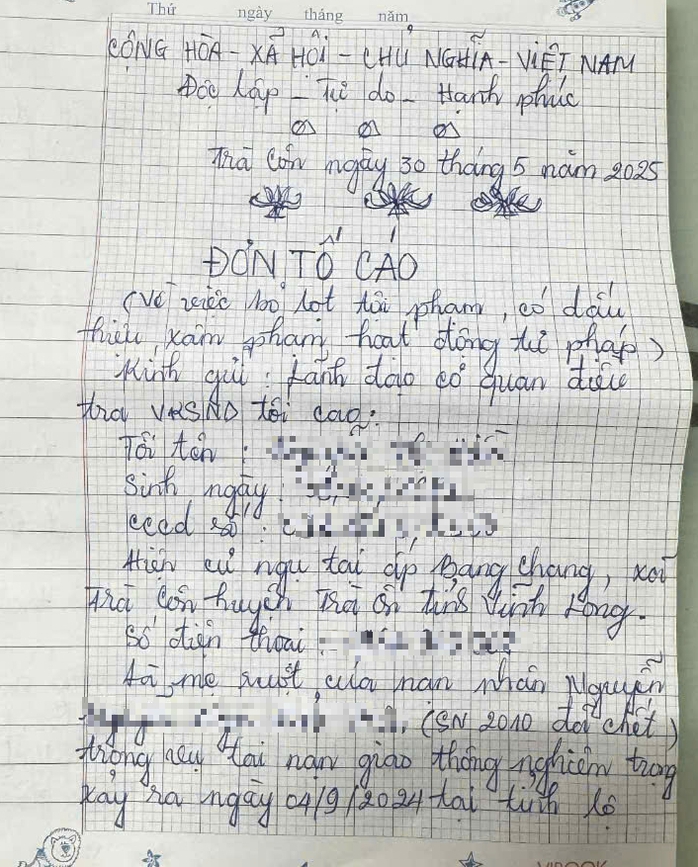 Thứ ngày tháng năm
CỘNG HÒA - XÃ HỘI - CHỦ NGHĨA - VIỆT NAM
Độc lập - Tự do - Hạnh phúc
Trà Côn ngày 30 tháng 5 năm 2025
ĐƠN TỐ CÁO
(Về việc bỏ lọt tội phạm, có dấu
hiệu xâm phạm hoạt động tư pháp)
Kính gửi: Lãnh đạo cơ quan điều
tra VKSND tối cao:
Tôi tên :
Sinh ngày:
cccd số :
Hiện cư ngụ tại ấp Bang Chang, xã
Trà Côn huyện Trà Ôn tỉnh Vĩnh Long.
Số điện thoại :
Là mẹ ruột của nạn nhân Nguyễn
(SN 2010 đã chết)
trong vụ tai nạn giao thông nghiêm trọng
xảy ra ngày 04/9/2024 tại tỉnh lộ
VIBOOK